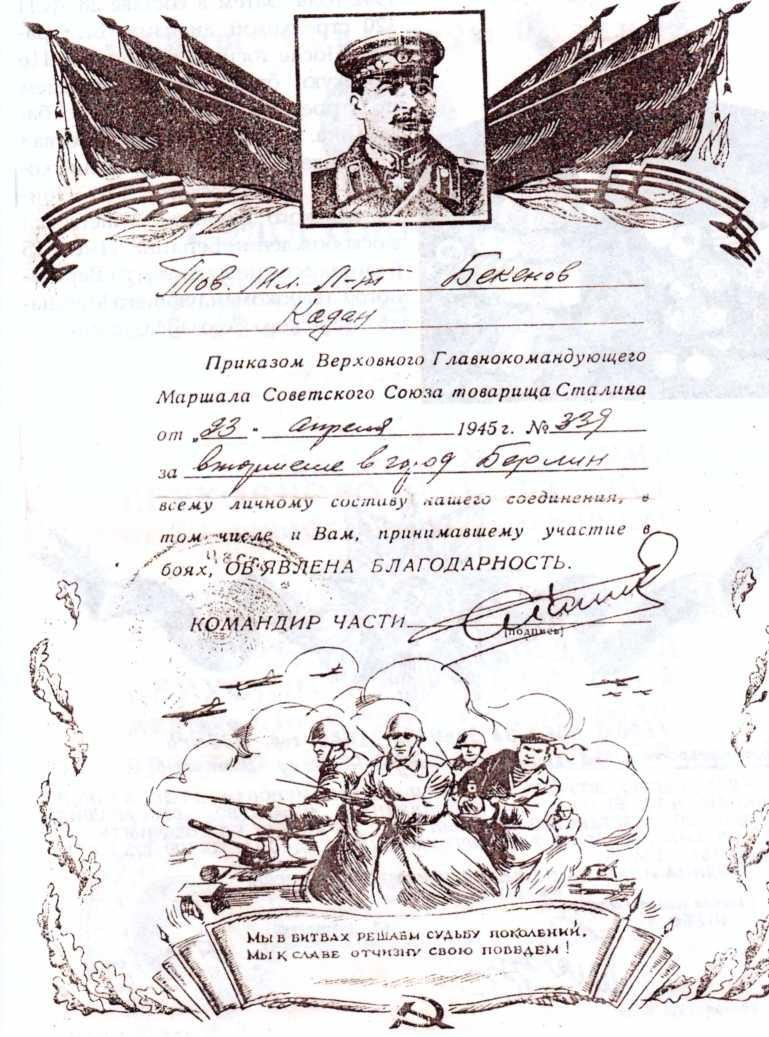 Тов. Мл. Л-нт Бекенов
Кадан
Приказом Верховного Главнокомандующего
Маршала Советского Союза товарища Сталина
от „23“ апреля 1945 г. № 339
за вторжение в город Берлин
всему личному составу нашего соединения, в
том числе и Вам, принимавшему участие в
боях, ОБ'ЯВЛЕНА БЛАГОДАРНОСТЬ.
КОМАНДИР ЧАСТИ
(подпись)
МЫ В БИТВАХ РЕШАЕМ СУДЬБУ ПОКОЛЕНИЙ,
МЫ К СЛАВЕ ОТЧИЗНУ СВОЮ ПОВЕДЕМ!